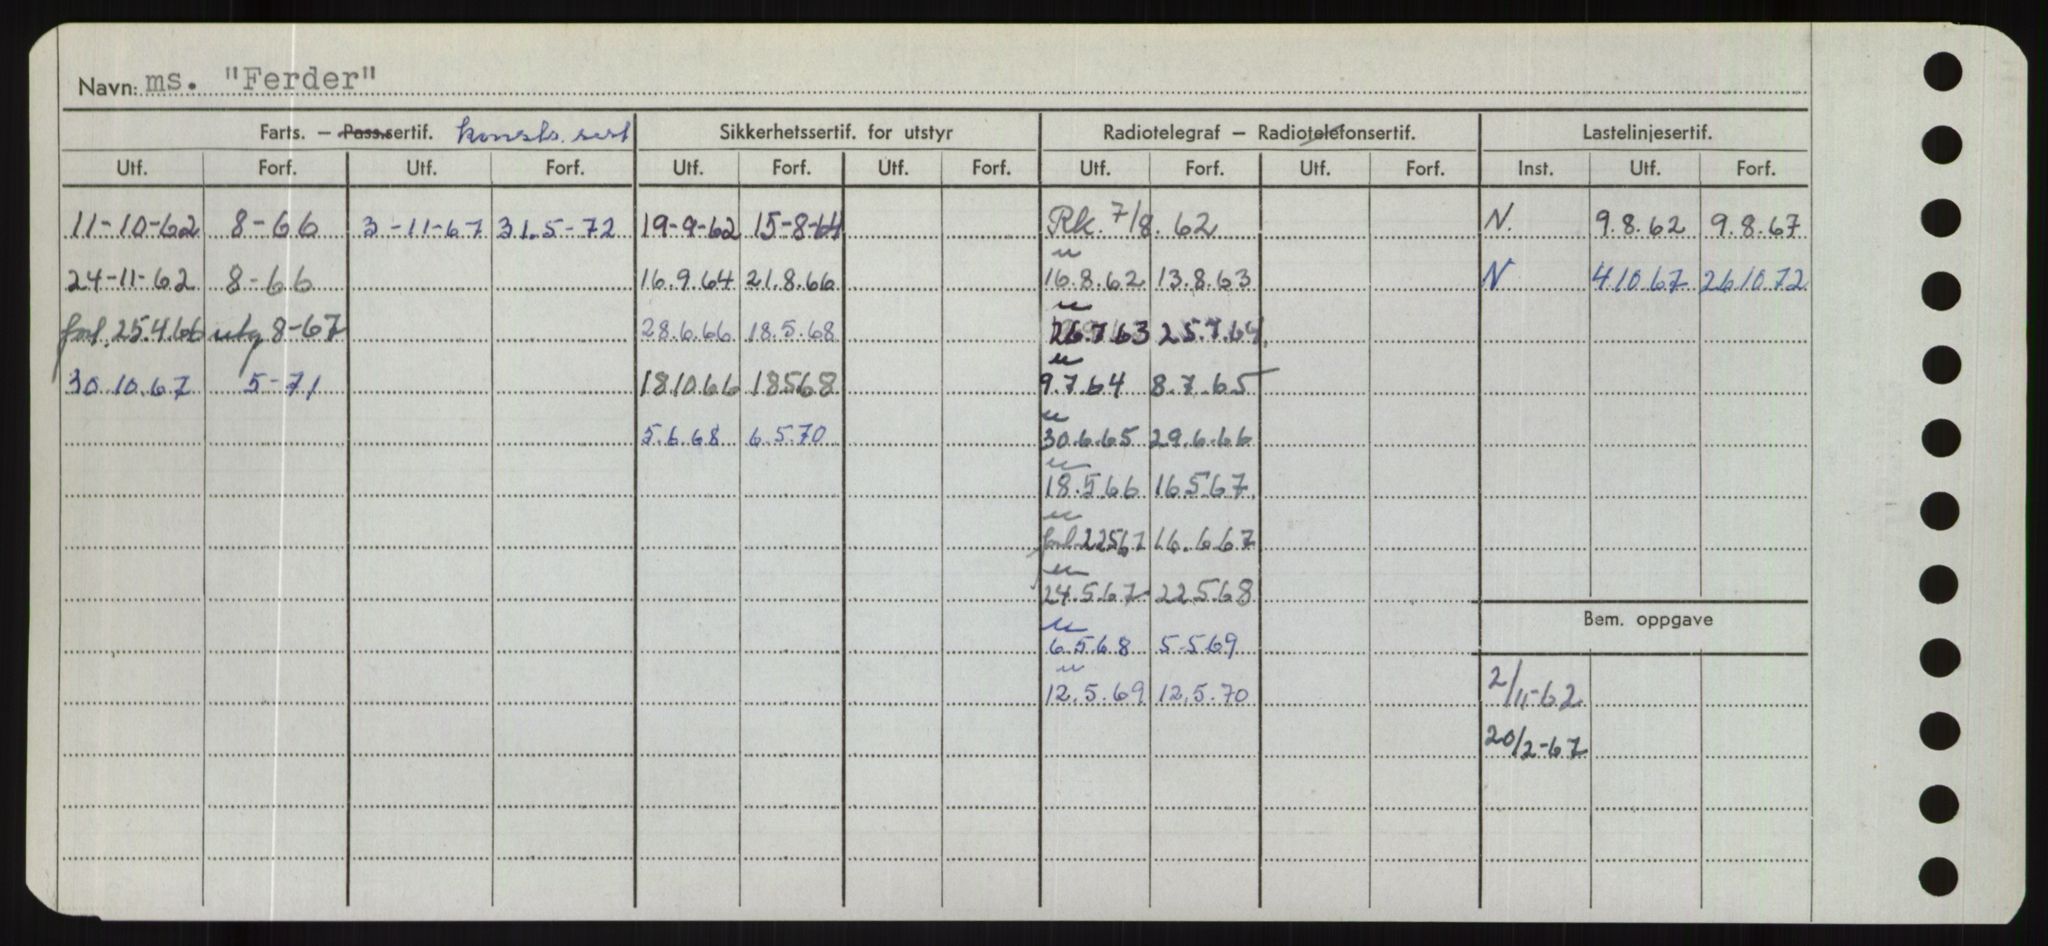 Navn: ms. "Ferder"
Farts. – Pass.sertif. konstr. sert Sikkerhetssertif. for utstyr Radiotelegraf – Radiotelefonsertif. Lastelinjesertif.
Utf. Forf. Utf. Forf. Utf. Forf. Utf. Forf. Utf. Forf. Utf. Forf. Inst. Utf. Forf.
11-10-62 8-66 3-11-67 31.5-72 19-9-62 15-8-64 Rk. 7/8. 62 N. 9.8.62 9.8.67
24-11-62 8-66 16.9.64 21.8.66 " 16.8.62 13.8.63 N 4.10.67 26.10.72
forl. 25.4.66 utg 8-67 28.6.66 18.5.68 " 26.7.63 25.7.64
30.10.67 5-71 18.10.66 18.5.68 " 9.7.64 8.7.65
5.6.68 6.5.70 " 30.6.65 29.6.66
" 18.5.66 16.5.67
" forl. 22.5.67 16.6.67
" 24.5.67 22.5.68
Bem. oppgave
" 6.5.68 5.5.69
" 12.5.69 12.5.70 2/11-62
20/2-67